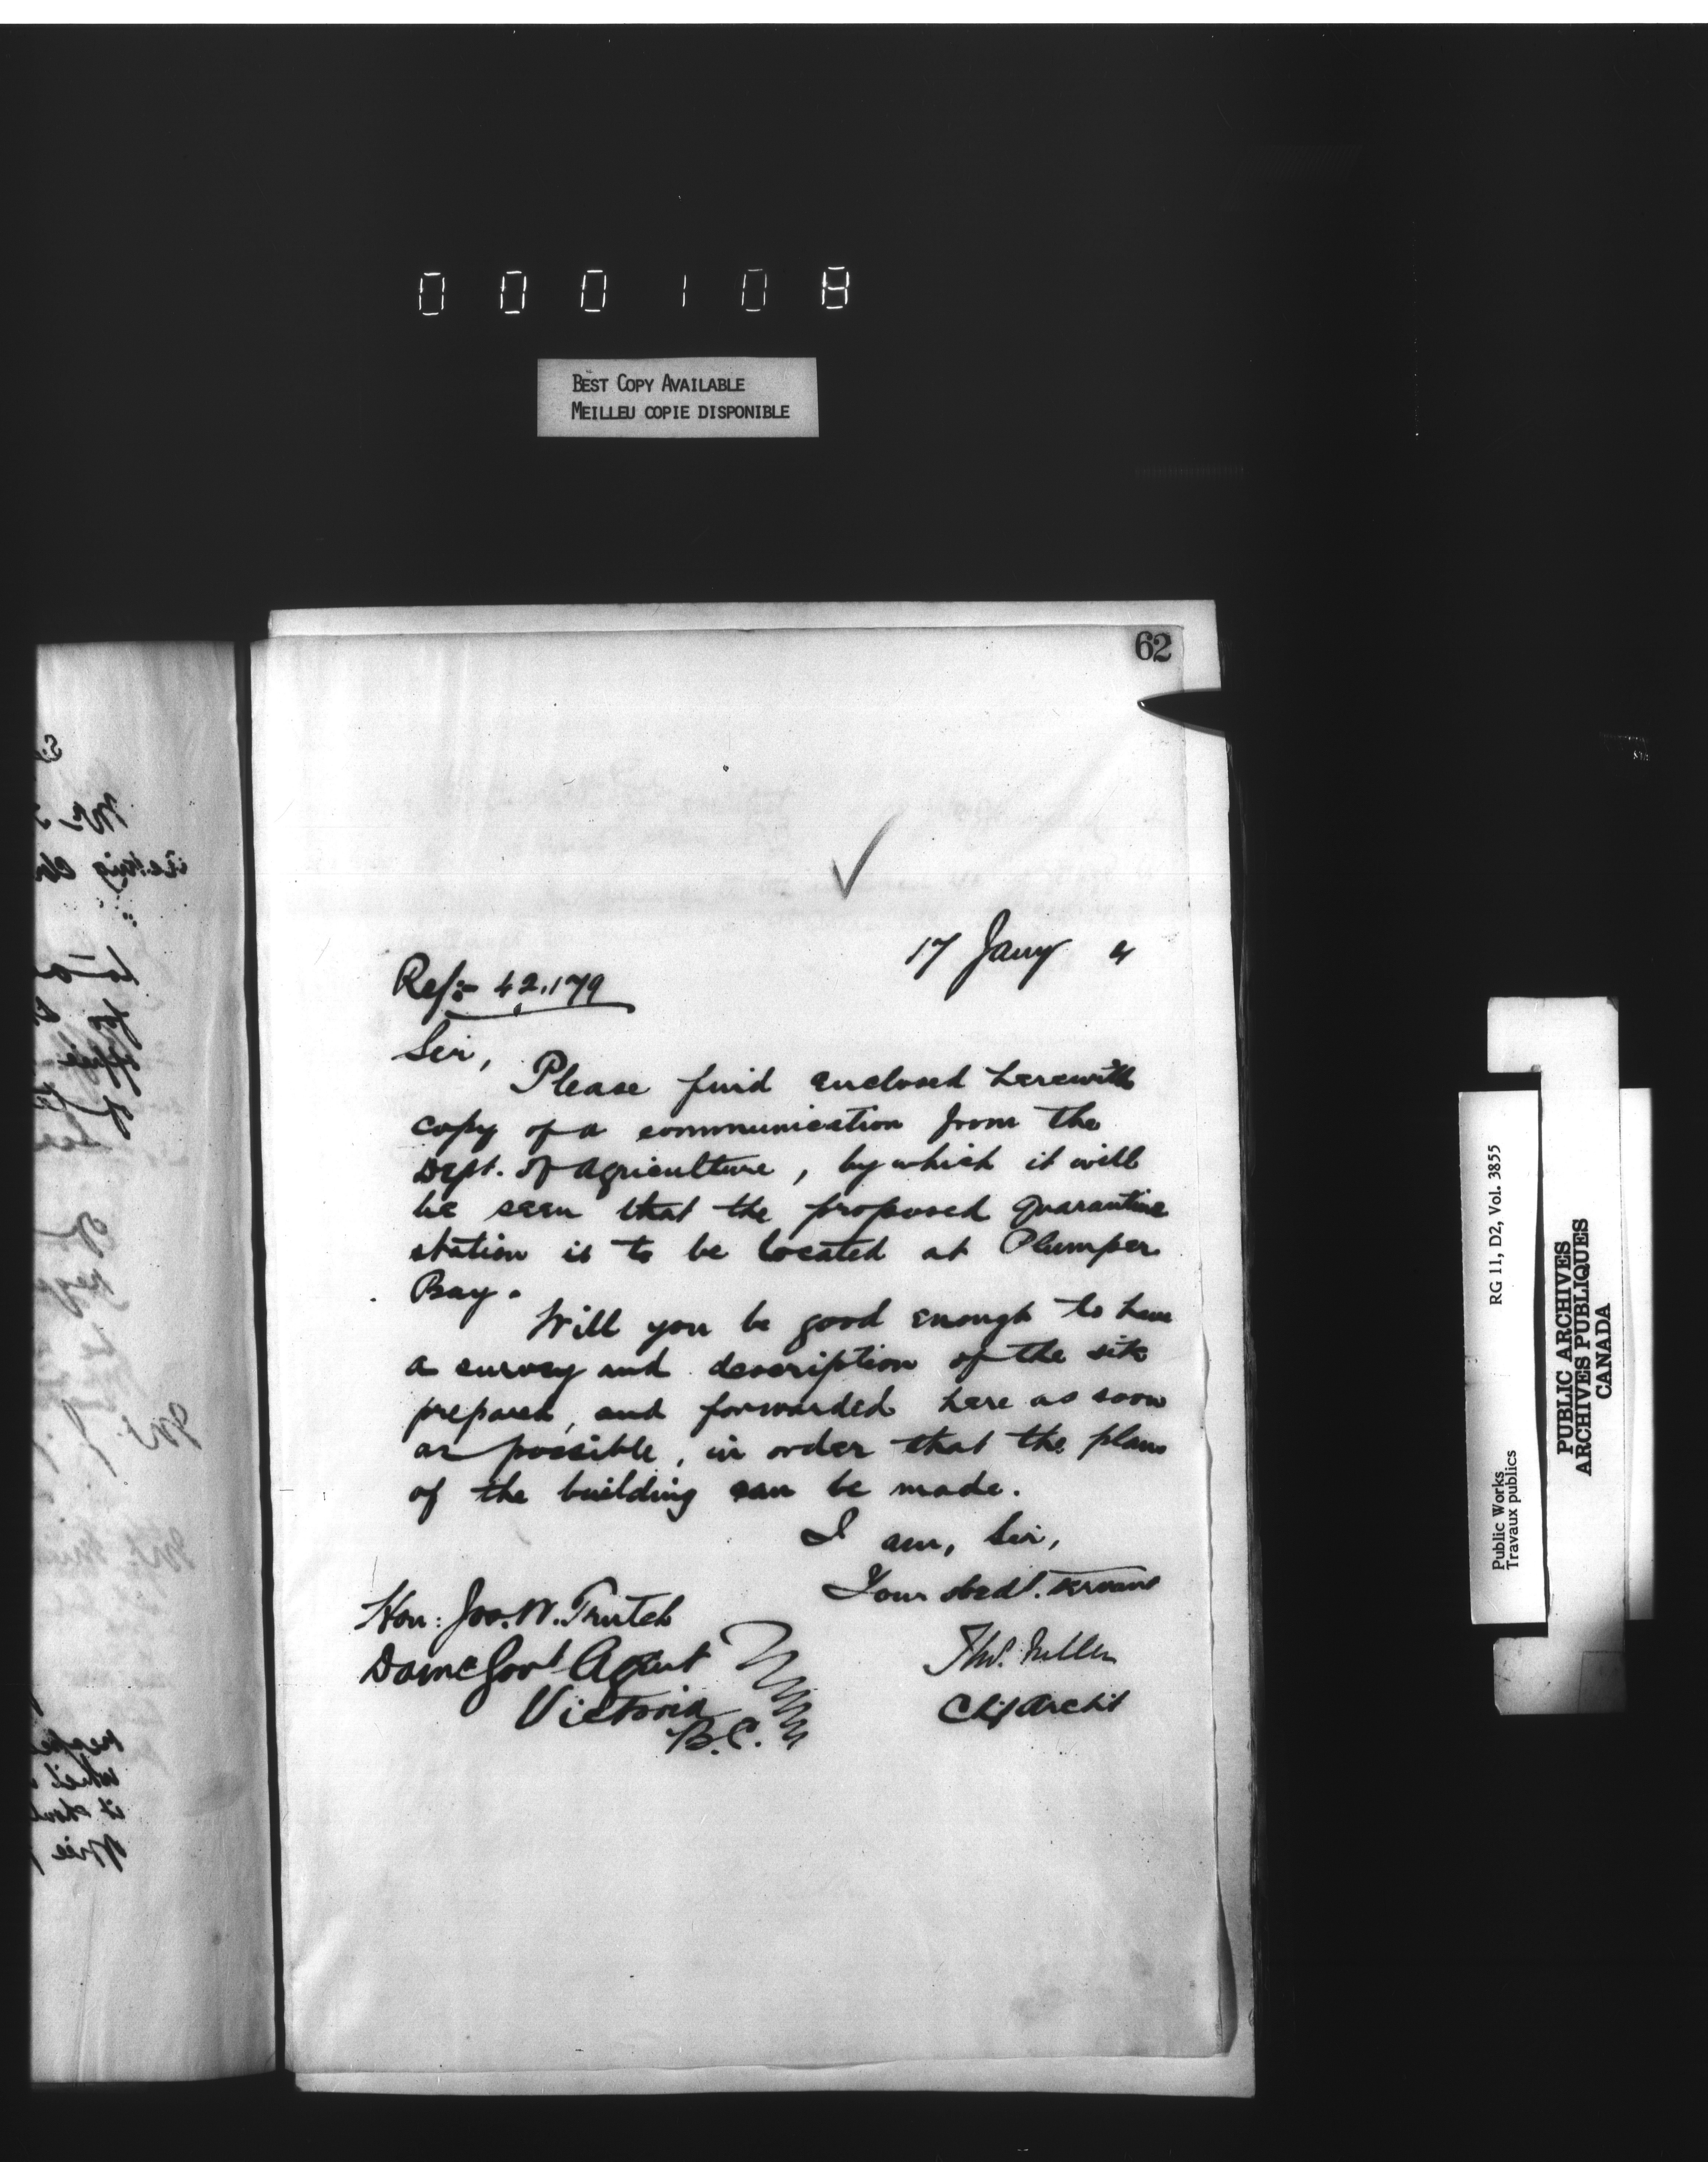 000108
BEST COPY AVAILABLE
MEILLEU COPIE DISPONIBLE
62
17 Jany 4
Ref:- 42,179
Sir,
Please find enclosed herewith
copy of a communication from the
Dept. of Agriculture, by which it will
be seen that the proposed Quarantine
station is to be located at Plumper
Bay.
Will you be good enough to have
a survey and description of the site
prepared, and forwarded here as soon
as possible, in order that the plans
of the building can be made.
I am, Sir,
Your obedt. servant
Thos. Fuller
Chf Archt
Hon: Jos. W. Trutch
Domn Govt Agent
Victoria
B.C.
Public Works
Travaux publics
RG 11, D2, Vol. 3855
PUBLIC ARCHIVES
ARCHIVES PUBLIQUES
CANADA